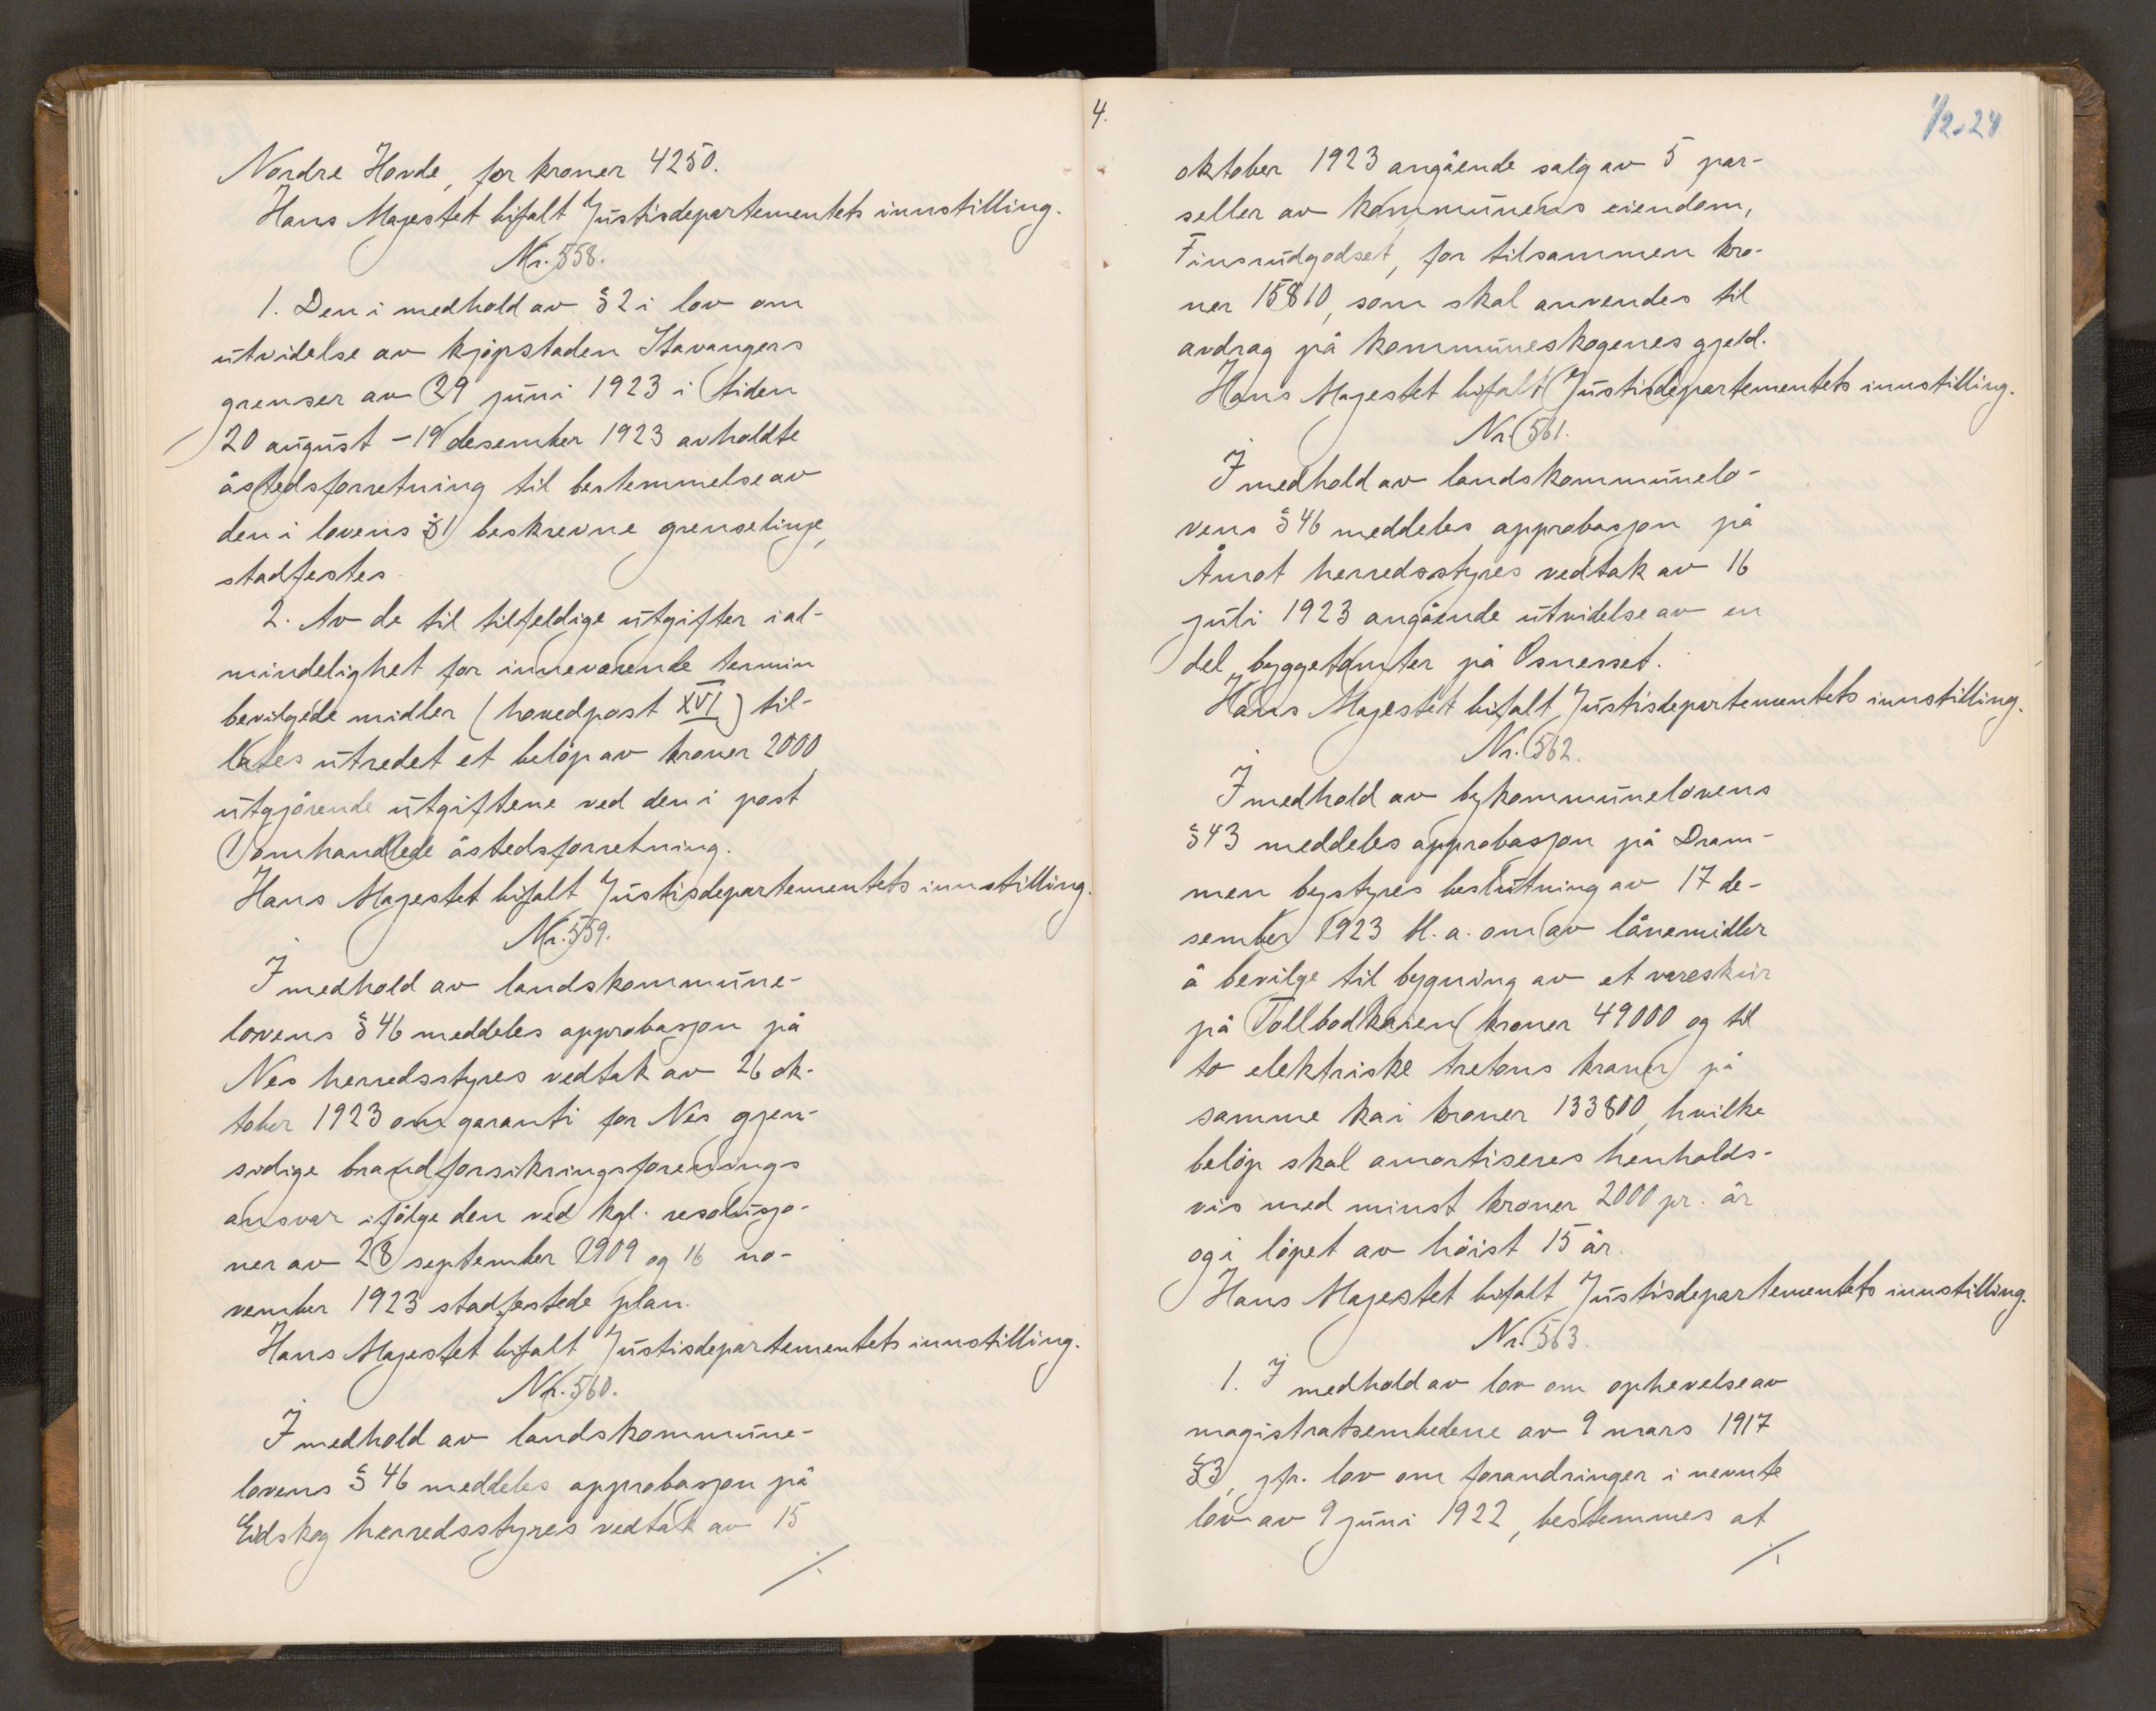 Nordre Hovde, for kroner 4250.
Hans Majestet bifalt Justisdepartementets innstilling.
Nr. 558.
1. Den i medhold av § 2 i lov om
utvidelse av kjøpstaden Stavangers
grenser av 29 juni 1923 i tiden
20 august - 19 desember 1923 avholdte
åstedsforretning til bestemmelse av
den i lovens § 1 beskrevne grenselinje,
stadfestes.
2. Av de til tilfeldige utgifter i al-
mindelighet for inneværende termin
bevilgede midler (hovedpost XVI) til-
lates utredet et beløp av kroner 2000
utgjørende utgiftene ved den i post
1 omhandlede åstedsforretning.
Hans Majestet bifalt Justisdepartementets innstilling.
Nr. 559.
I medhold av landskommune-
lovens § 46 meddeles approbasjon på
Nes herredsstyres vedtak av 26 ok-
tober 1923 om garanti for Nes gjen-
sidige brandforsikringsforenings
ansvar ifølge den ved kgl. resolusjo-
ner av 28 september 1909 og 16 no-
vember 1923 stadfestede plan.
Hans Majestet bifalt Justisdepartementets innstilling.
Nr. 560.
I medhold av landskommune-
lovens § 46 meddeles approbasjon på
Eidskog herredsstyres vedtak av 15
./.
4.
1/2-24
oktober 1923 angående salg av 5 par-
seller av kommunens eiendom,
Finsrudgodset, for tilsammen kro-
ner 15810, som skal anvendes til
avdrag på kommuneskogenes gjeld.
Hans Majestet bifalt Justisdepartementets innstilling.
Nr. 561.
I medhold av landskommunelo-
vens § 46 meddeles approbasjon på
Åmot herredsstyres vedtak av 16
juli 1923 angående utvidelse av en
del byggetomter på Osnesset.
Hans Majestet bifalt Justisdepartementets innstilling.
Nr. 562.
I medhold av bykommunelovens
§ 43 meddeles approbasjon på Dram-
men bystyres beslutning av 17 de-
sember 1923 bl. a. om av lånemidler
å bevilge til bygning av et vareskur
på Tollbodkaien kroner 49000 og til
to elektriske tretons kraner på
samme kai kroner 133800, hvilke
beløp skal amortiseres henholds-
vis med minst kroner 2000 pr. år
og i løpet av høist 15 år.
Hans Majestet bifalt Justisdepartementets innstilling.
Nr. 563.
1. I medhold av lov om ophevelse av
magistratsembedene av 9 mars 1917
§ 3, jfr. lov om forandringer i nevnte
lov av 9 juni 1922, bestemmes at
./.